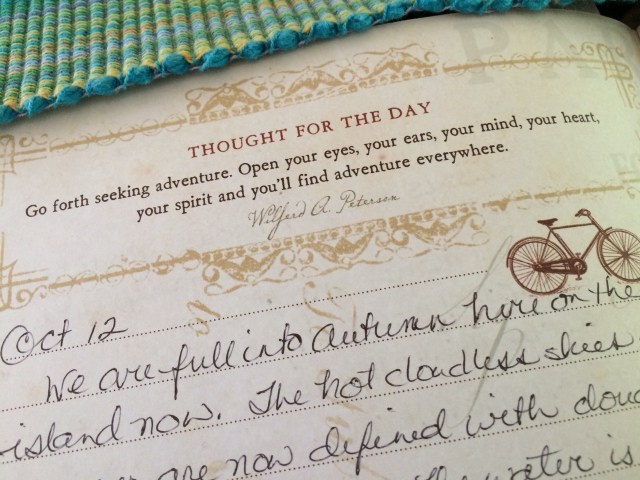 THOUGHT FOR THE DAY
Go forth seeking adventure. Open your eyes, your ears, your mind, your heart,
your spirit and you'll find adventure everywhere.
Wilferd A. Peterson
Oct 12
We are full into Autumn here on the
island now. The hot cloudless skies
are now defined with clou
water is